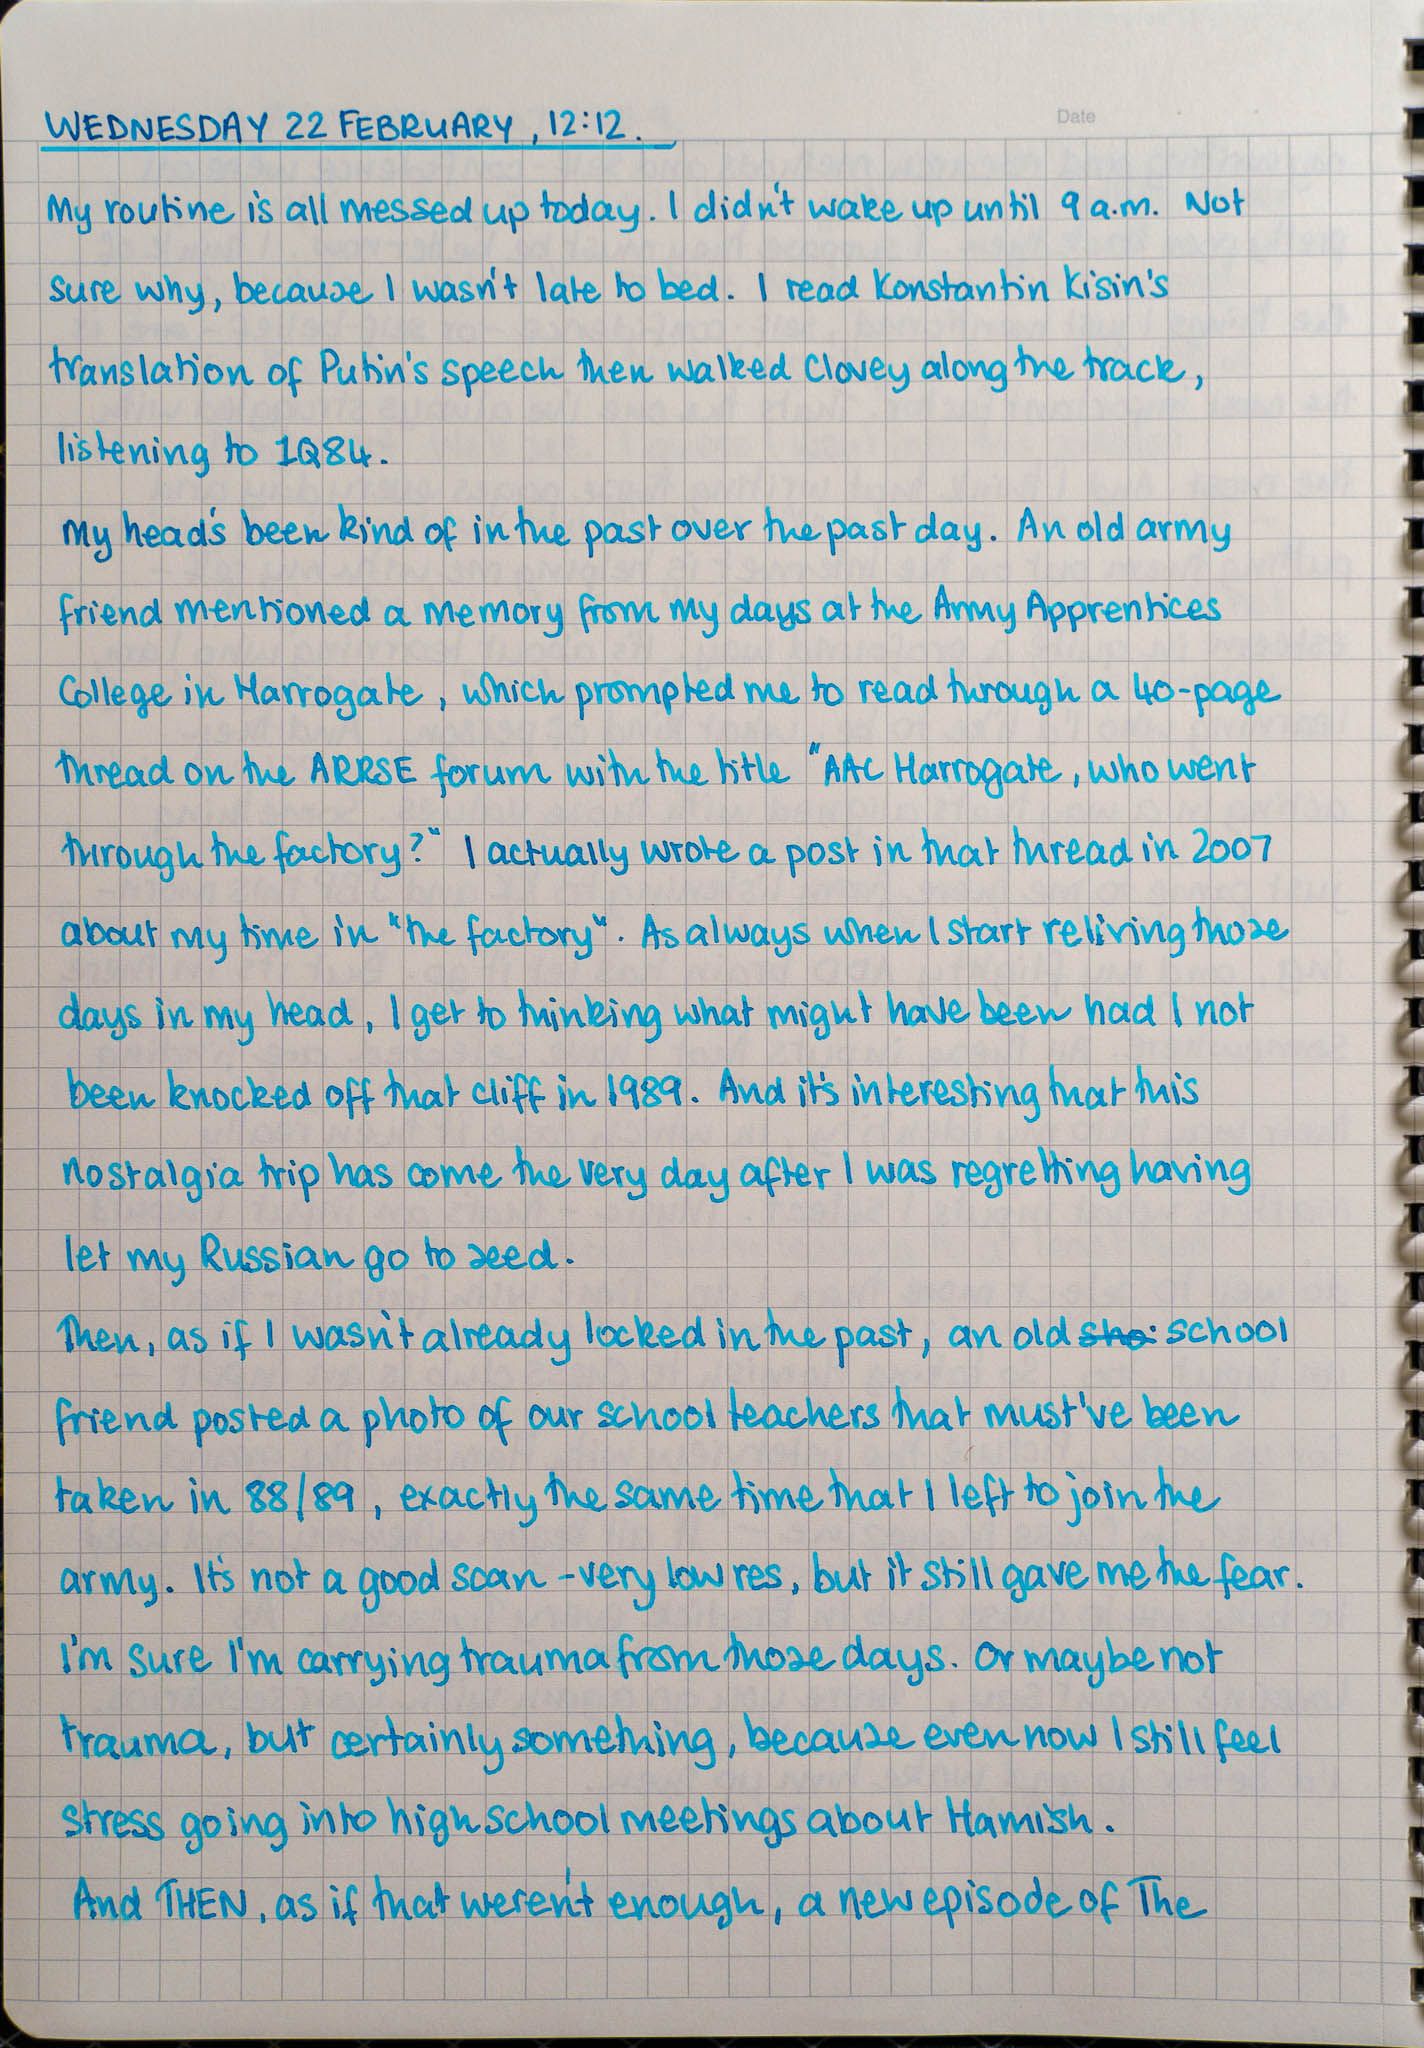 WEDNESDAY 22 FEBRUARY, 12:12.
Date
My routine is all messed up today. I didn't wake up until 9 a.m. Not
sure why, because I wasn't late to bed. I read Konstantin Kisin's
translation of Putin's speech then walked Clovey along the track,
listening to 1Q84.
My head's been kind of in the past over the past day. An old army
friend mentioned a memory from my days at the Army Apprentices
College in Harrogate, which prompted me to read through a 40-page
thread on the ARRSE forum with the title "AAC Harrogate, who went
through the factory?" I actually wrote a post in that thread in 2007
about my time in "the factory". As always when I start reliving those
days in my head, I get to thinking what might have been had I not
been knocked off that cliff in 1989. And it's interesting that this
nostalgia trip has come the very day after I was regretting having
let my Russian go to seed.
Then, as if I wasn't already locked in the past, an old sho school
friend posted a photo of our school teachers that must've been
taken in 88/89, exactly the same time that I left to join the
army. It's not a good scan - very low res, but it still gave me the fear.
I'm sure I'm carrying trauma from those days. Or maybe not
trauma, but certainly something, because even now I still feel
stress going into high school meetings about Hamish.
And THEN, as if that weren't enough, a new episode of The